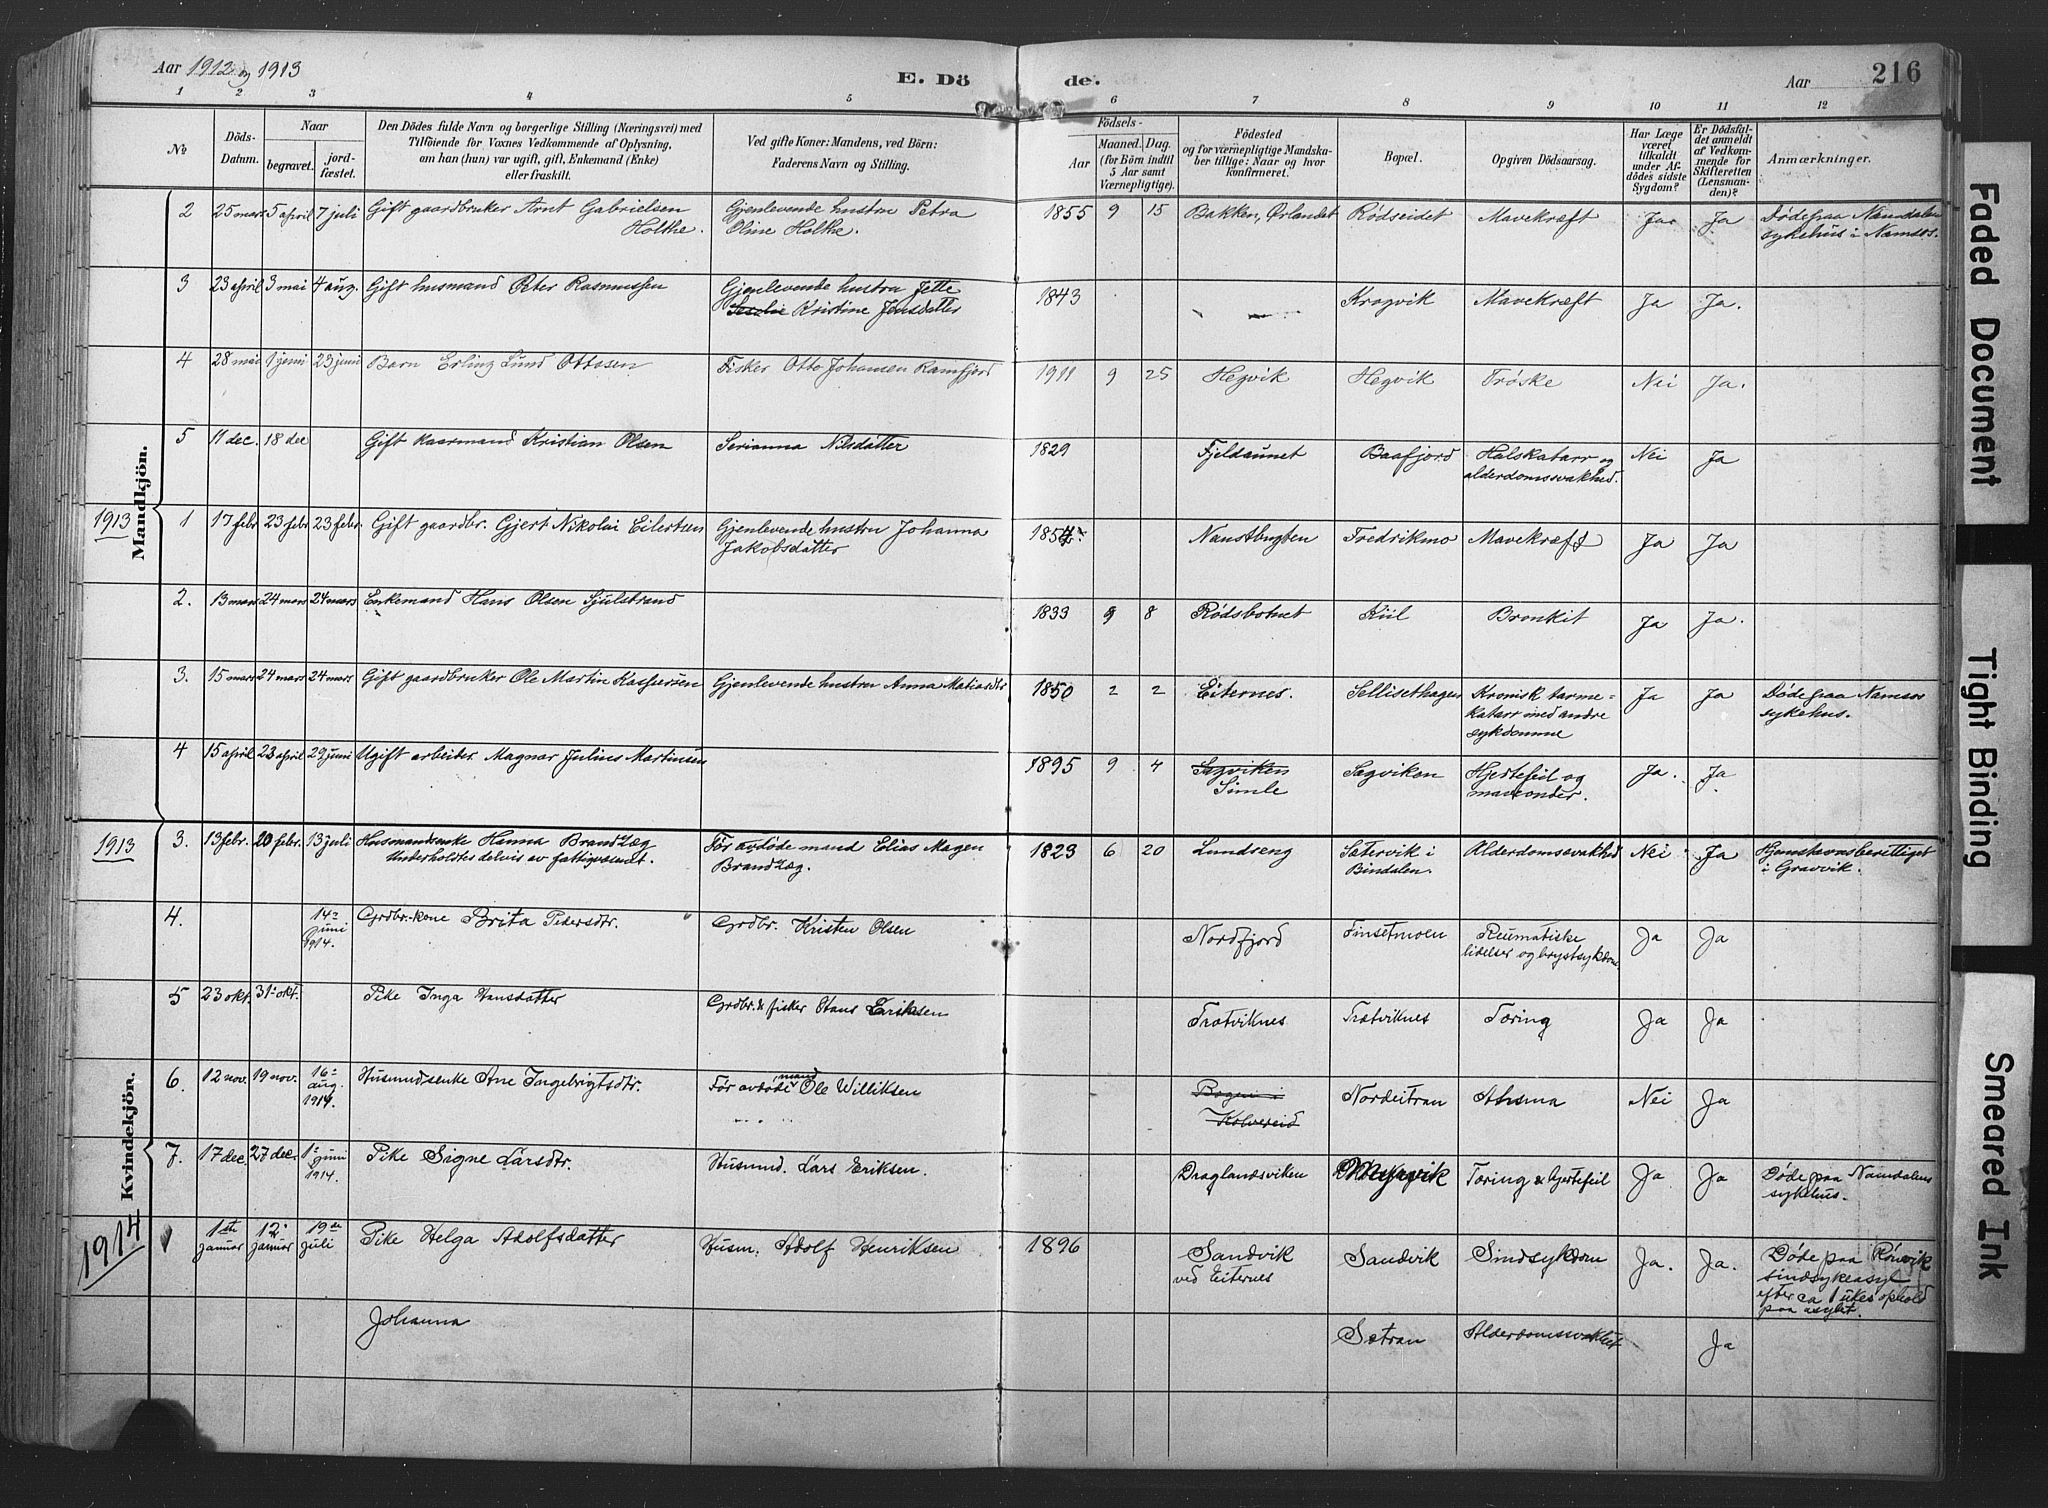 Aar 1912 og 1913
E. Döde.
Aar
216
1 2 3 4 5 6 7 8 9 10 11 12
No
Döds-Datum.
Naar
begravet.
jord-fæstet.
Den Dödes fulde Navn og borgerlige Stilling (Næringsvei) med
Tilföiende for Voxnes Vedkommende af Oplysning,
om han (hun) var ugift, gift, Enkemand (Enke)
eller fraskilt.
Ved gifte Koner: Mandens, ved Börn:
Faderens Navn og Stilling.
Födsels-
Aar
Maaned. Dag.
(for Börn indtil
5 Aar samt
Værnepligtige).
Födested
og for værnepligtige Mandska-
ber tillige: Naar og hvor
konfirmeret.
Bopæl.
Opgiven Dödsaarsag.
Har Læge
været
tilkaldt
under Af-
dödes sidste
Sygdom?
Er Dödsfal-
det anmeldt
af Vedkom-
mende for
Skifteretten
(Lensman-
den)?
Anmærkninger.
Mandkjön.
2 25 mars 5 april 7 juli Gift gaardbruker Arnt Gabrielsen Gjenlevende hustru Petra 1855 9 15 Bakken, Ørlandet Rödseidet Mavekræft Ja Ja Döde paa Namdalens
Holthe. Oline Holthe. sykehus i Namsos.
3 23 april 3 mai 4 aug. Gift husmand Peter Rasmussen Gjenlevende hustru Jette 1843 Krogvik Mavekræft Ja Ja.
Kristine Jensdatter
4 28 mai 1 juni 23 juni Barn Erling Lund Ottosen Fisker Otto Johansen Ramfjord 1911 9 25 Hegvik Hegvik Tröske Nei Ja.
5 11 dec. 18 dec Gift kaarmand Kristian Olsen Serianna Nilsdatter 1829 Fjeldaunet Baafjord Halskatarr og Nei Ja
alderdomssvakhed.
1913 1 17 febr 23 febr 23 febr. Gift gaardbr. Gjert Nikolai Eilertsen Gjenlevende hustru Johanna 1854 Naustbugten Fredrikmo Mavekræft Ja Ja
Jakobsdatter
2. 13 mars 24 mars 24 mars Enkemand Hans Olsen Sjulstrand 1833 9 8 Rödsbotnet Kiil Bronkit Ja Ja.
3. 15 mars 24 mars 24 mars Gift gaardbruker Ole Martin Kaspersen Gjenlevende hustru Anna Matiasdtr 1850 2 2 Eiternes. Sellisethagen Kronisk tarme- Ja Ja Döde paa Namsos
katarr med andre sykehus.
sykdomme
4 15 april 23 april 29 juni Ugift arbeider. Magnar Julius Martinsen 1895 9 4 Sagviken Sagviken Hjertefeil og Ja. Ja.
Simle maveonder.
Kvindekjön.
1913 3. 13 febr. 20 febr. 13 juli Husmandsenke Hanna Brandtzæg Før avdøde mand Elias Magen 1823 6 20 Lundseng Sætervik i Alderdomssvakhed Nei Ja Hjemstavnsberettiget
Underholdtes delvis av fattigvæsenet. Brandtzæg. Bindalen. i Gravvik.
4. 14de juni 1914. Grdbr.-kone Brita Pedersdtr. Grdbr. Kristen Olsen Nordfjord Finsetmoen Reumatiske Ja Ja
lidelser og brystsykdom
5 23 okt. 31 okt. Pike Inga Hansdatter Grdbr. & fisker Hans Eriksen Trætviknes Trætviknes Tæring Ja Ja
6. 12 nov. 19 nov. 16 aug. 1914. Husmdsenke Ane Ingebrigtsdtr. Før avdøde mand Ole Williksen Bogen i Nordeitran Athsma Nei Ja
Kolvereid
7. 17 dec. 27 dec. 1 juni 1914. Pike Signe Larsdtr. Husmnd. Lars Eriksen. Draglandsviken Tæring & hjertefeil Ja Ja Døde paa Namdalens
sykehus.
1914 1 1ste januar 12 januar 19de juli Pike Helga Adolfsdatter Husm. Adolf Henriksen 1896 Sandvik Sandvik Sindsykdom Ja. Ja. Døde paa Rönvik
ved Eiternes sindsykeasyl
efter ca 1 ukes ophold
paa asylet.
Johanna Sætran Alderdomssvakhet Ja
Faded Document
Tight Binding
Smeared Ink